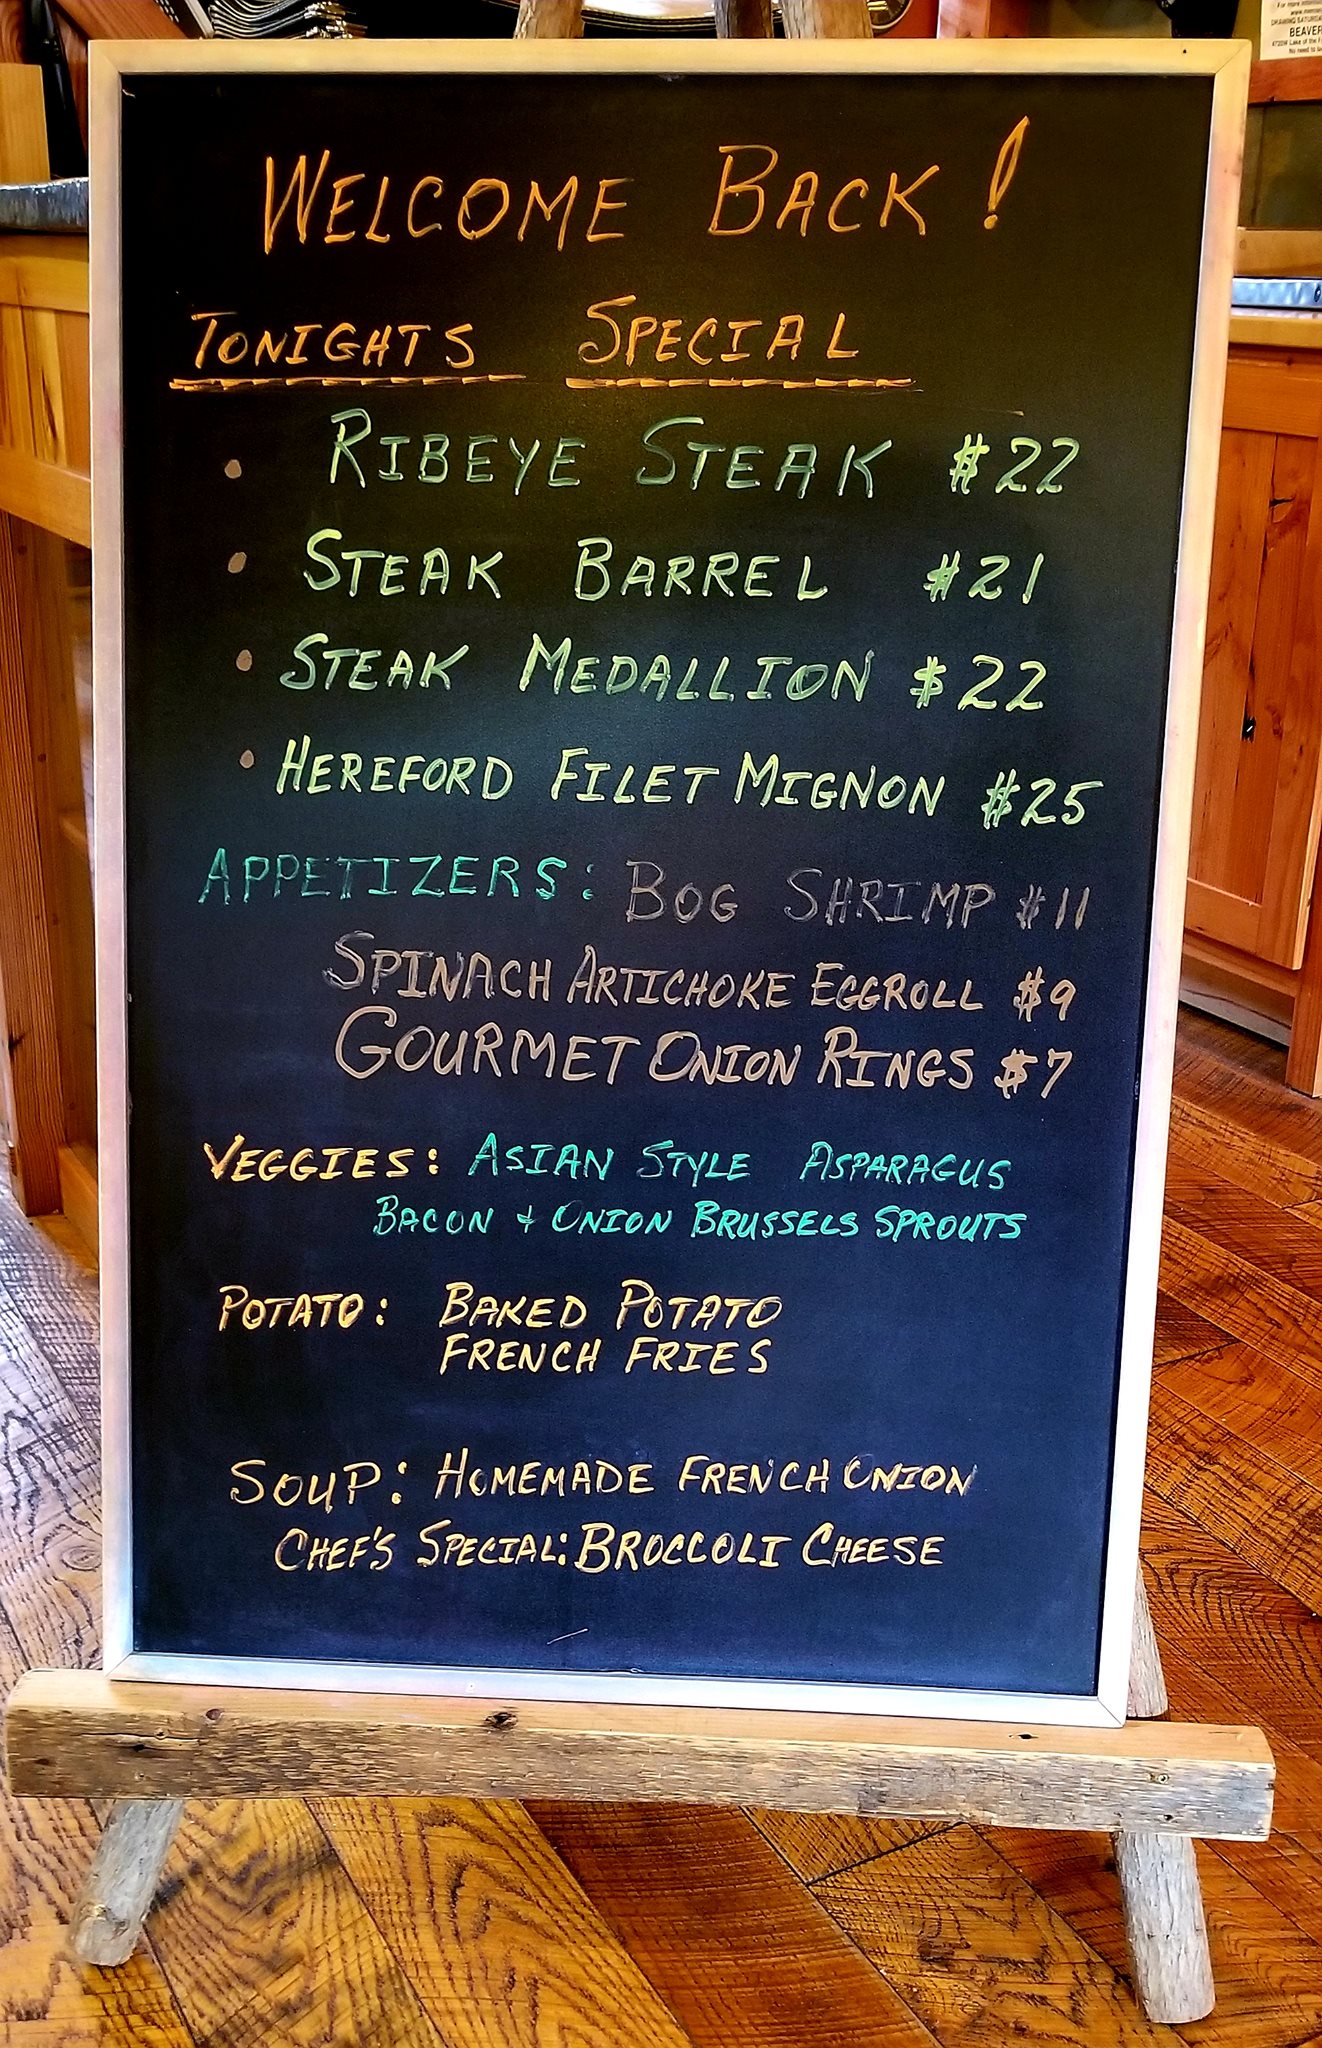 For more inform
DRAWING SATURDA
BEAVER
WELCOME BACK!
TONIGHTS SPECIAL
• RIBEYE STEAK $22
• STEAK BARREL $21
• STEAK MEDALLION $22
• HEREFORD FILET MIGNON $25
APPETIZERS: BOG SHRIMP $11
SPINACH ARTICHOKE EGGROLL $9
GOURMET ONION RINGS $7
VEGGIES: ASIAN STYLE ASPARAGUS
BACON + ONION BRUSSELS SPROUTS
POTATO: BAKED POTATO
FRENCH FRIES
SOUP: HOMEMADE FRENCH ONION
CHEF'S SPECIAL: BROCCOLI CHEESE